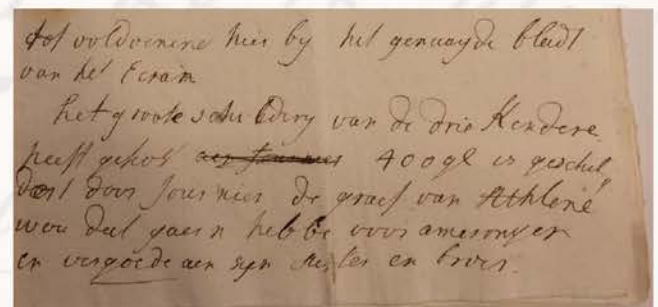 tot voldoenine hier by het genaayde bladt
van het Ecrain
het groote schildery van de drie Kendere
heeft gekost aen fournier 400 gl is geschil
dert door fournier de graef van Athlene
wou dat gaern hebbe voor amerongen
en vergoede aen syn suster en broer.